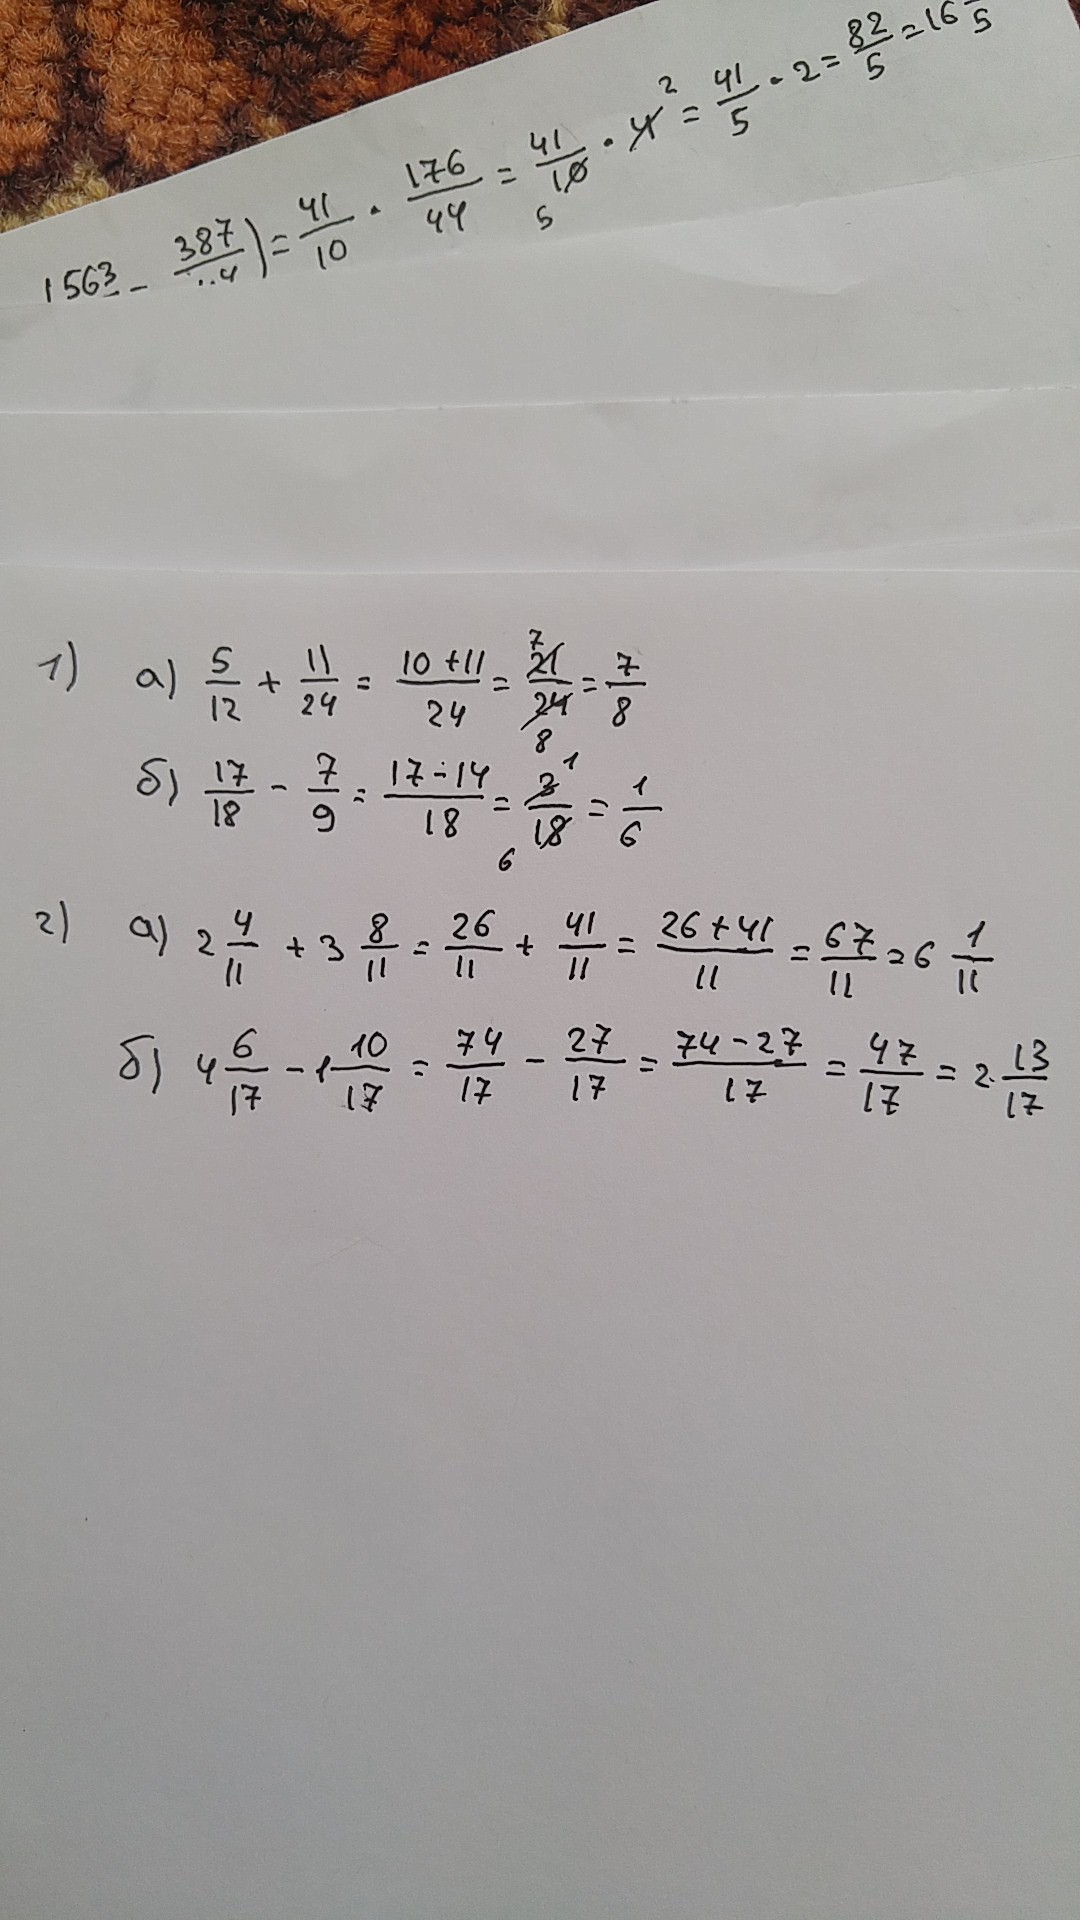 1563 - 387/4) = 41/10 · 176/44 = 41/10 5 · 4 2 = 41/5 · 2 = 82/5 = 16 /5
1) а) 5/12 + 11/24 = 10+11/24 = 7 21/24 8 = 7/8
б) 17/18 - 7/9 = 17-14/18 = 3 1/18 6 = 1/6
2) а) 2 4/11 + 3 8/11 = 26/11 + 41/11 = 26+41/11 = 67/11 = 6 1/11
б) 4 6/17 - 1 10/17 = 74/17 - 27/17 = 74-27/17 = 47/17 = 2 13/17